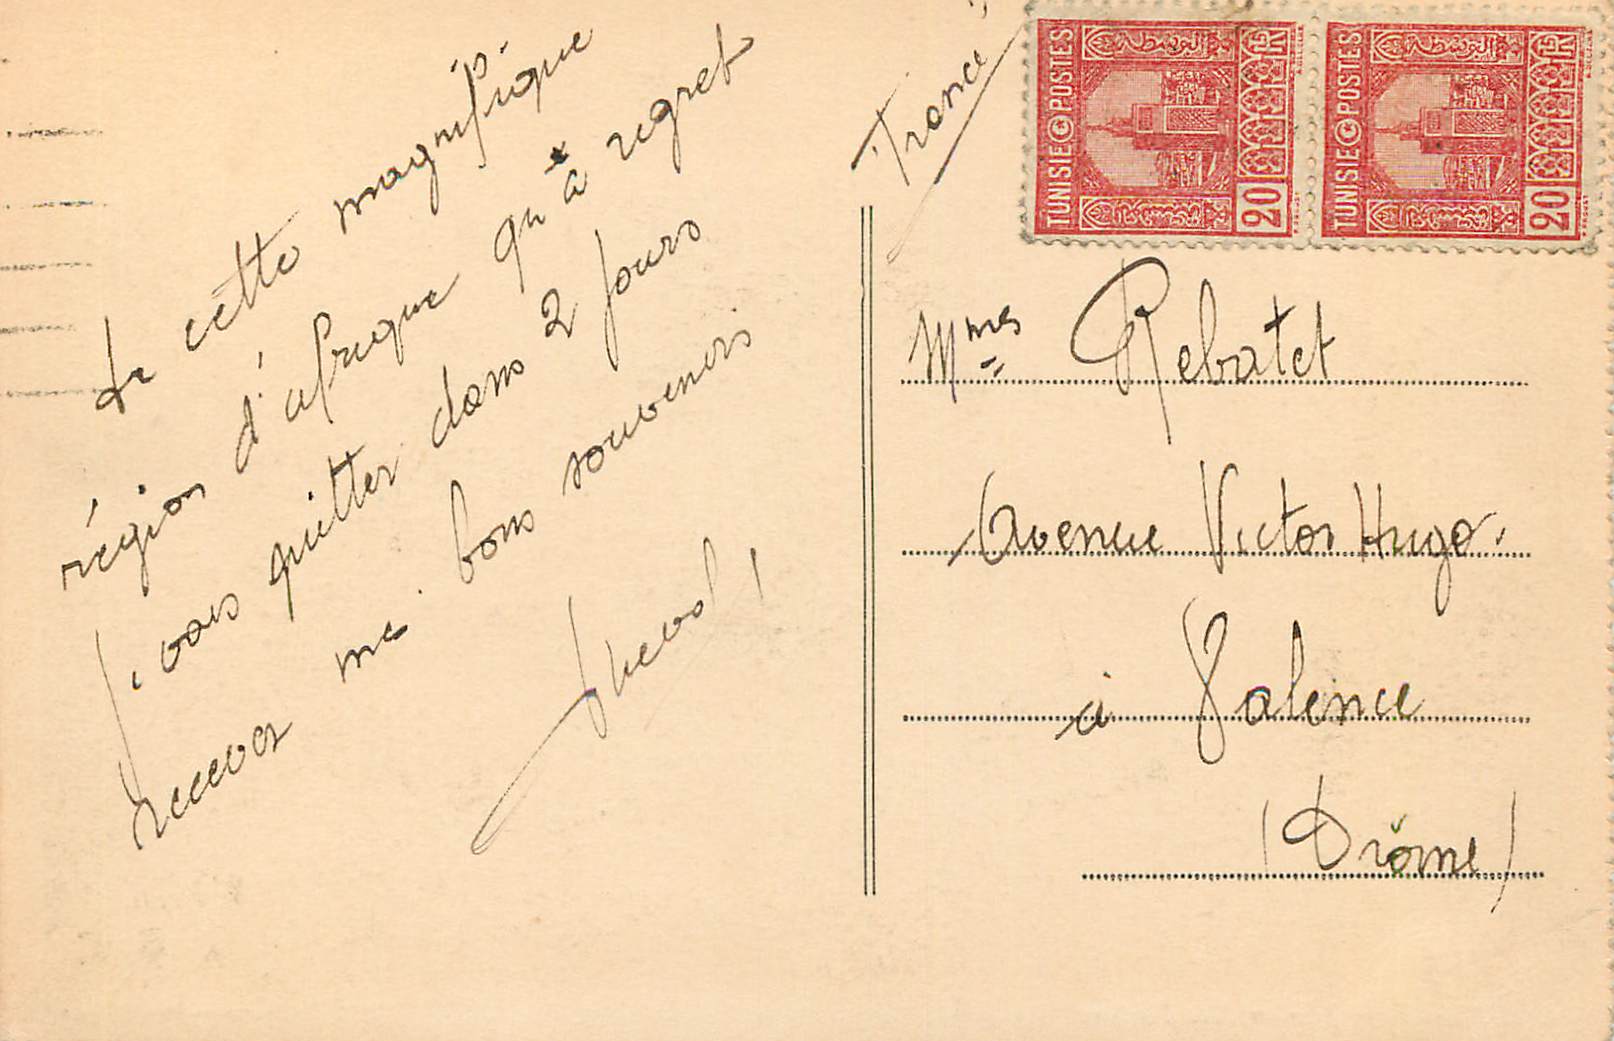 De cette magnifique
région d'afrique qu'à regret
je vais quitter dans 2 jours
recevez mes bons souvenirs
France
TUNISIE POSTES
20
TUNISIE POSTES
20
Mmes Rebatet
Avenue Victor Hugo.
à Valence
(Drôme)